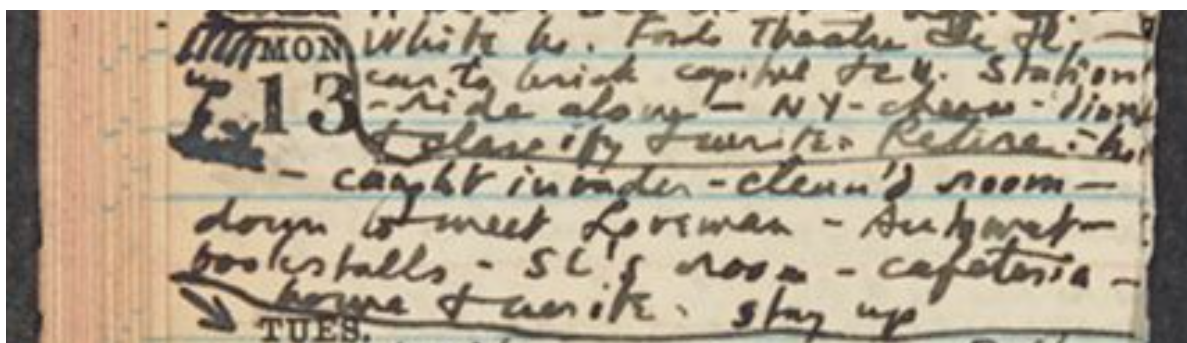 MON White Ho. Fords Theatre
up car to capitol & U. Station
13 - ride along - NY - chess - dinner
& classify & write. Retire.
- caught invader - clean'd room -
down to meet Loveman - Automat -
bookstalls - SL's room - cafeteria -
home & write. stay up
TUES.